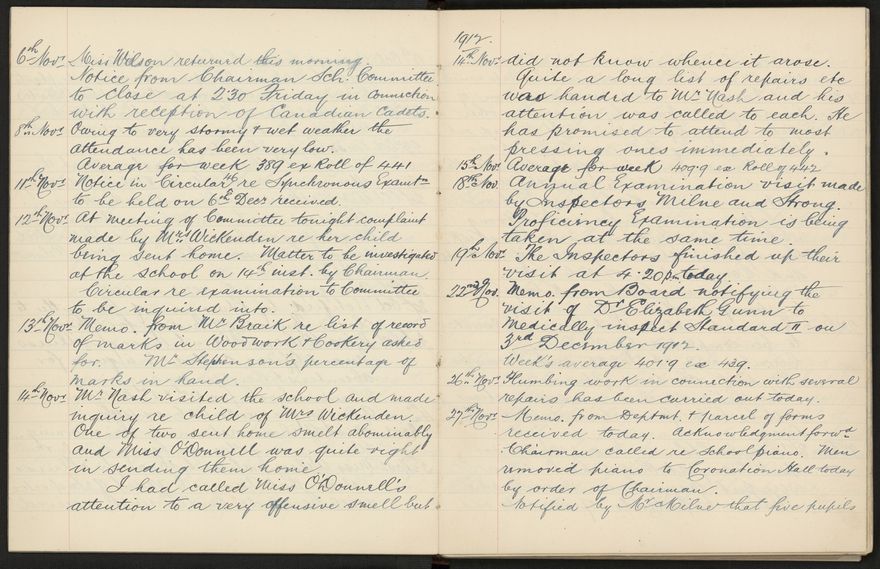 6th Novr Miss Wilson returnrd this morning
Notice from Chairman Sch. Committee
to close at 2.30 Friday in connection
with reception of Canadian Cadets.
8th Novr Owing to very stormy & wet weather the
attendance has been very low.
Average for week 389 ex Roll of 441
11th Novr Notice in Circular 46 re Synchronous Examtn
to be held on 6th Decr received.
12th Novr At meeting of Committee tonight complaint
made by Mrs Wickenden re her child
being sent home. Matter to be investigated
at the school on 14th inst. by Chairman.
Circular re examination to Committee
to be inquired into.
13th Novr Memo. from Mr Braik re list of record
of marks in Woodwork & Cookery asked
for. Mr Stephenson's percentage of
marks in hand.
14th Novr Mr Nash visited the school and made
inquiry re child of Mrs Wickenden.
One of two sent home smelt abominably
and Miss O'Donnell was quite right
in sending them home
I had called Miss O'Donnell's
attention to a very offensive smell but
1912.
14th Novr did not know whence it arose.
Quite a long list of repairs etc
was handed to Mr Nash and his
attention was called to each. He
has promised to attend to most
pressing ones immediately.
15th Novr Average for week 409.9 ex Roll of 442
18th Nov. Annual Examination visit made
by Inspectors Milne and Strong.
Proficiency Examination is being
taken at the same time.
19th Novr The Inspectors finished up their
visit at 4.20 p.m. today
22nd Nov. Memo. from Board notifying the
visit of Dr Elizabeth Gunn to
Medically inspect Standard II on
3rd December 1912.
Week's average 401.9 ex 439.
26th Novr Plumbing work in connection with several
repairs has been carried out today.
27th Novr Memo. from Deptmt. & parcel of forms
received today. Acknowledgment forwd
Chairman called re School piano. Men
removed piano to Coronation Hall today
by order of Chairman.
Notified by Mr Milne that five pupils